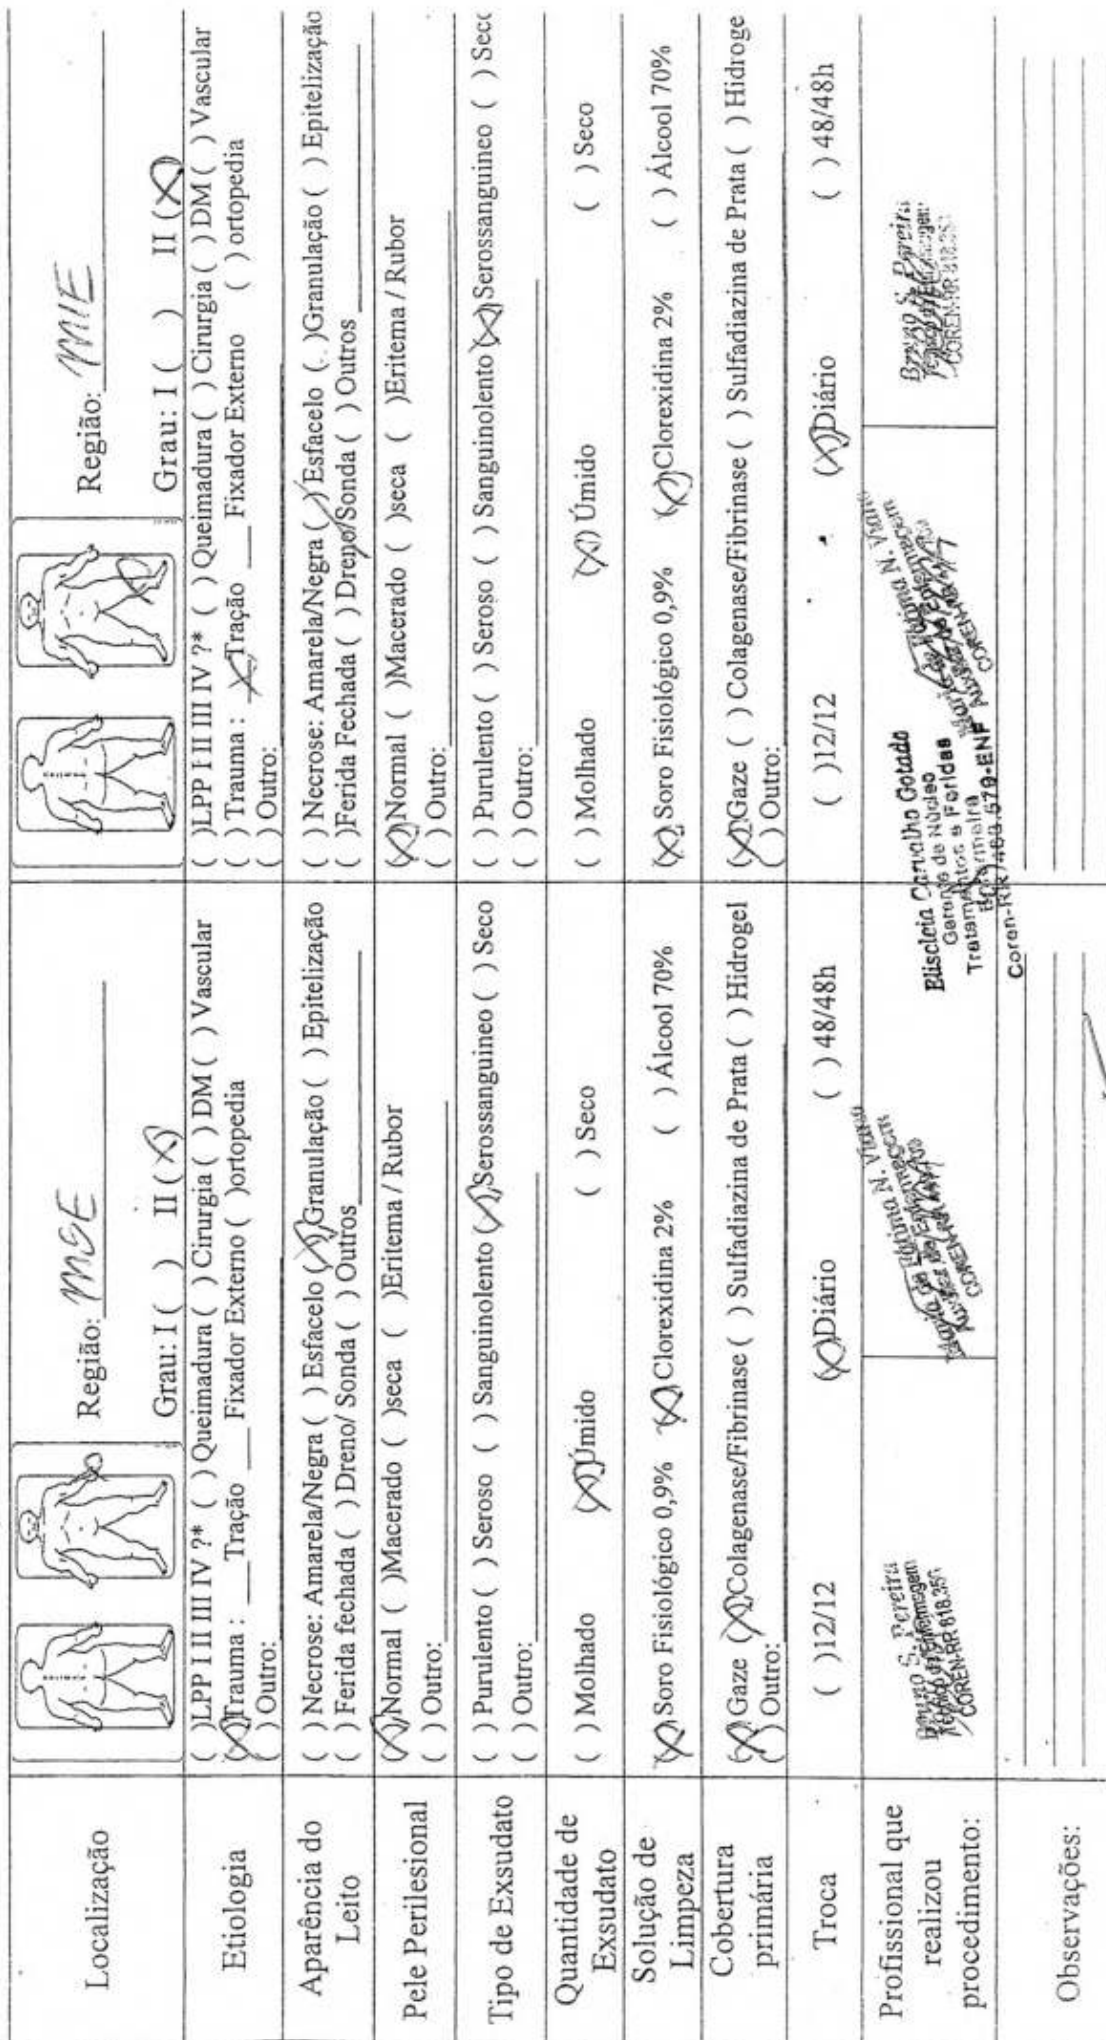 Localização
Região: MSE
Grau: I ( ) II (X)
Região: MIE
Grau: I ( ) II (X)
Etiologia
( )LPP I II III IV ?* ( ) Queimadura ( ) Cirurgia ( ) DM ( ) Vascular
(X)Trauma : ___Tração ___ Fixador Externo ( )ortopedia
( ) Outro:
( )LPP I II III IV ?* ( ) Queimadura ( ) Cirurgia ( ) DM ( ) Vascular
( ) Trauma : X Tração ___ Fixador Externo ( ) ortopedia
( ) Outro:
Aparência do
Leito
( ) Necrose: Amarela/Negra ( ) Esfacelo (X)Granulação ( ) Epitelização
( ) Ferida fechada ( ) Dreno/ Sonda ( ) Outros
( ) Necrose: Amarela/Negra (/) Esfacelo ( )Granulação ( ) Epitelização
( )Ferida Fechada ( ) Dreno/Sonda ( ) Outros
Pele Perilesional
(X)Normal ( )Macerado ( )seca ( )Eritema / Rubor
( ) Outro:
(X)Normal ( )Macerado ( )seca ( )Eritema / Rubor
( ) Outro:
Tipo de Exsudato
( ) Purulento ( ) Seroso ( ) Sanguinolento (X)Serossanguineo ( ) Seco
( ) Outro:
( ) Purulento ( ) Seroso ( ) Sanguinolento (X)Serossanguineo ( ) Seco
( ) Outro:
Quantidade de
Exsudato
( ) Molhado (X)Úmido ( ) Seco
( ) Molhado (X) Úmido ( ) Seco
Solução de
Limpeza
(X)Soro Fisiológico 0,9% (X)Clorexidina 2% ( ) Álcool 70%
(X)Soro Fisiológico 0,9% (X)Clorexidina 2% ( ) Álcool 70%
Cobertura
primária
(X)Gaze (X)Colagenase/Fibrinase ( ) Sulfadiazina de Prata ( ) Hidrogel
( ) Outro:
(X)Gaze ( ) Colagenase/Fibrinase ( ) Sulfadiazina de Prata ( ) Hidroge
( ) Outro:
Troca
( )12/12 (X)Diário ( ) 48/48h
( )12/12 (X)Diário ( ) 48/48h
Profissional que
realizou
procedimento:
Bruno S. Pereira
COREN-RR 618.351
N. Viana
COREN
Eliscleia Carvalho Gotado
Gerente de Núcleo
Tratamentos e Feridas
Enfermeira
Coren-RR/463.579-ENF
N. Viana
COREN
Bruno S. Pereira
COREN-RR 618.351
Observações: